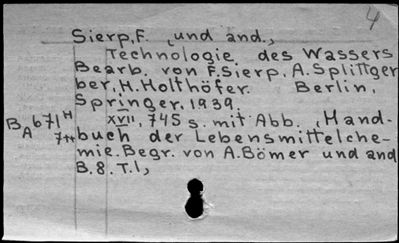 4
Sierp, F. , und and.,
Technologie des Wassers
Bearb. von F. Sierp, A. Splittger
ber, H. Holthöfer. Berlin,
Springer, 1939.
XVII, 745 s. mit Abb. , Hand-
B 671 H
A 7++
buch der Lebensmittelche-
mie. Begr. von A. Bömer und and
B. 8. T. 1,